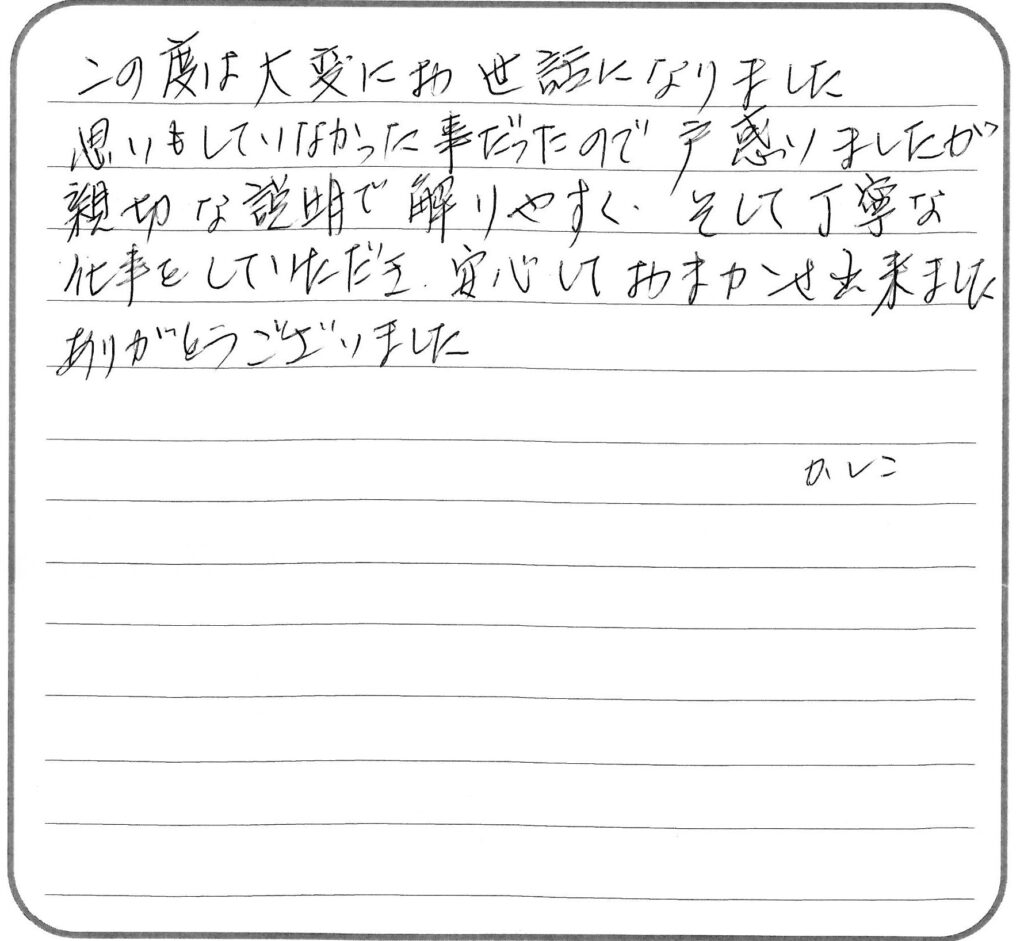 この度は大変にお世話になりました
思いもしていなかった事だったので戸惑いましたが
親切な説明で解りやすく、そして丁寧な
仕事をしていただき、安心しておまかせ出来ました
ありがとうございました
かしこ